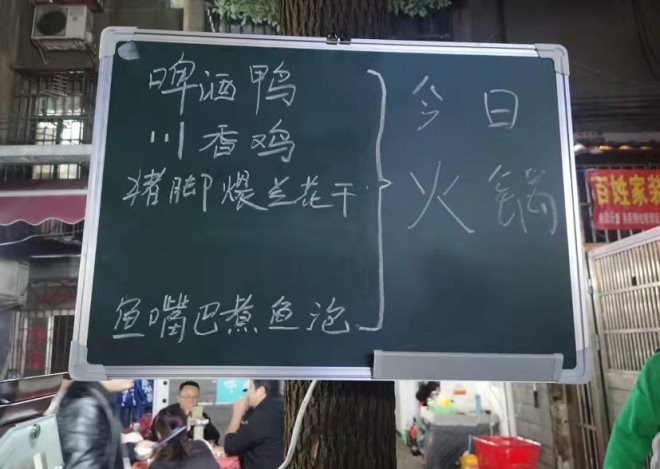 啤酒鸭
川香鸡
猪脚煨兰花干
鱼嘴巴煮鱼泡
今日
火锅
百姓家菜